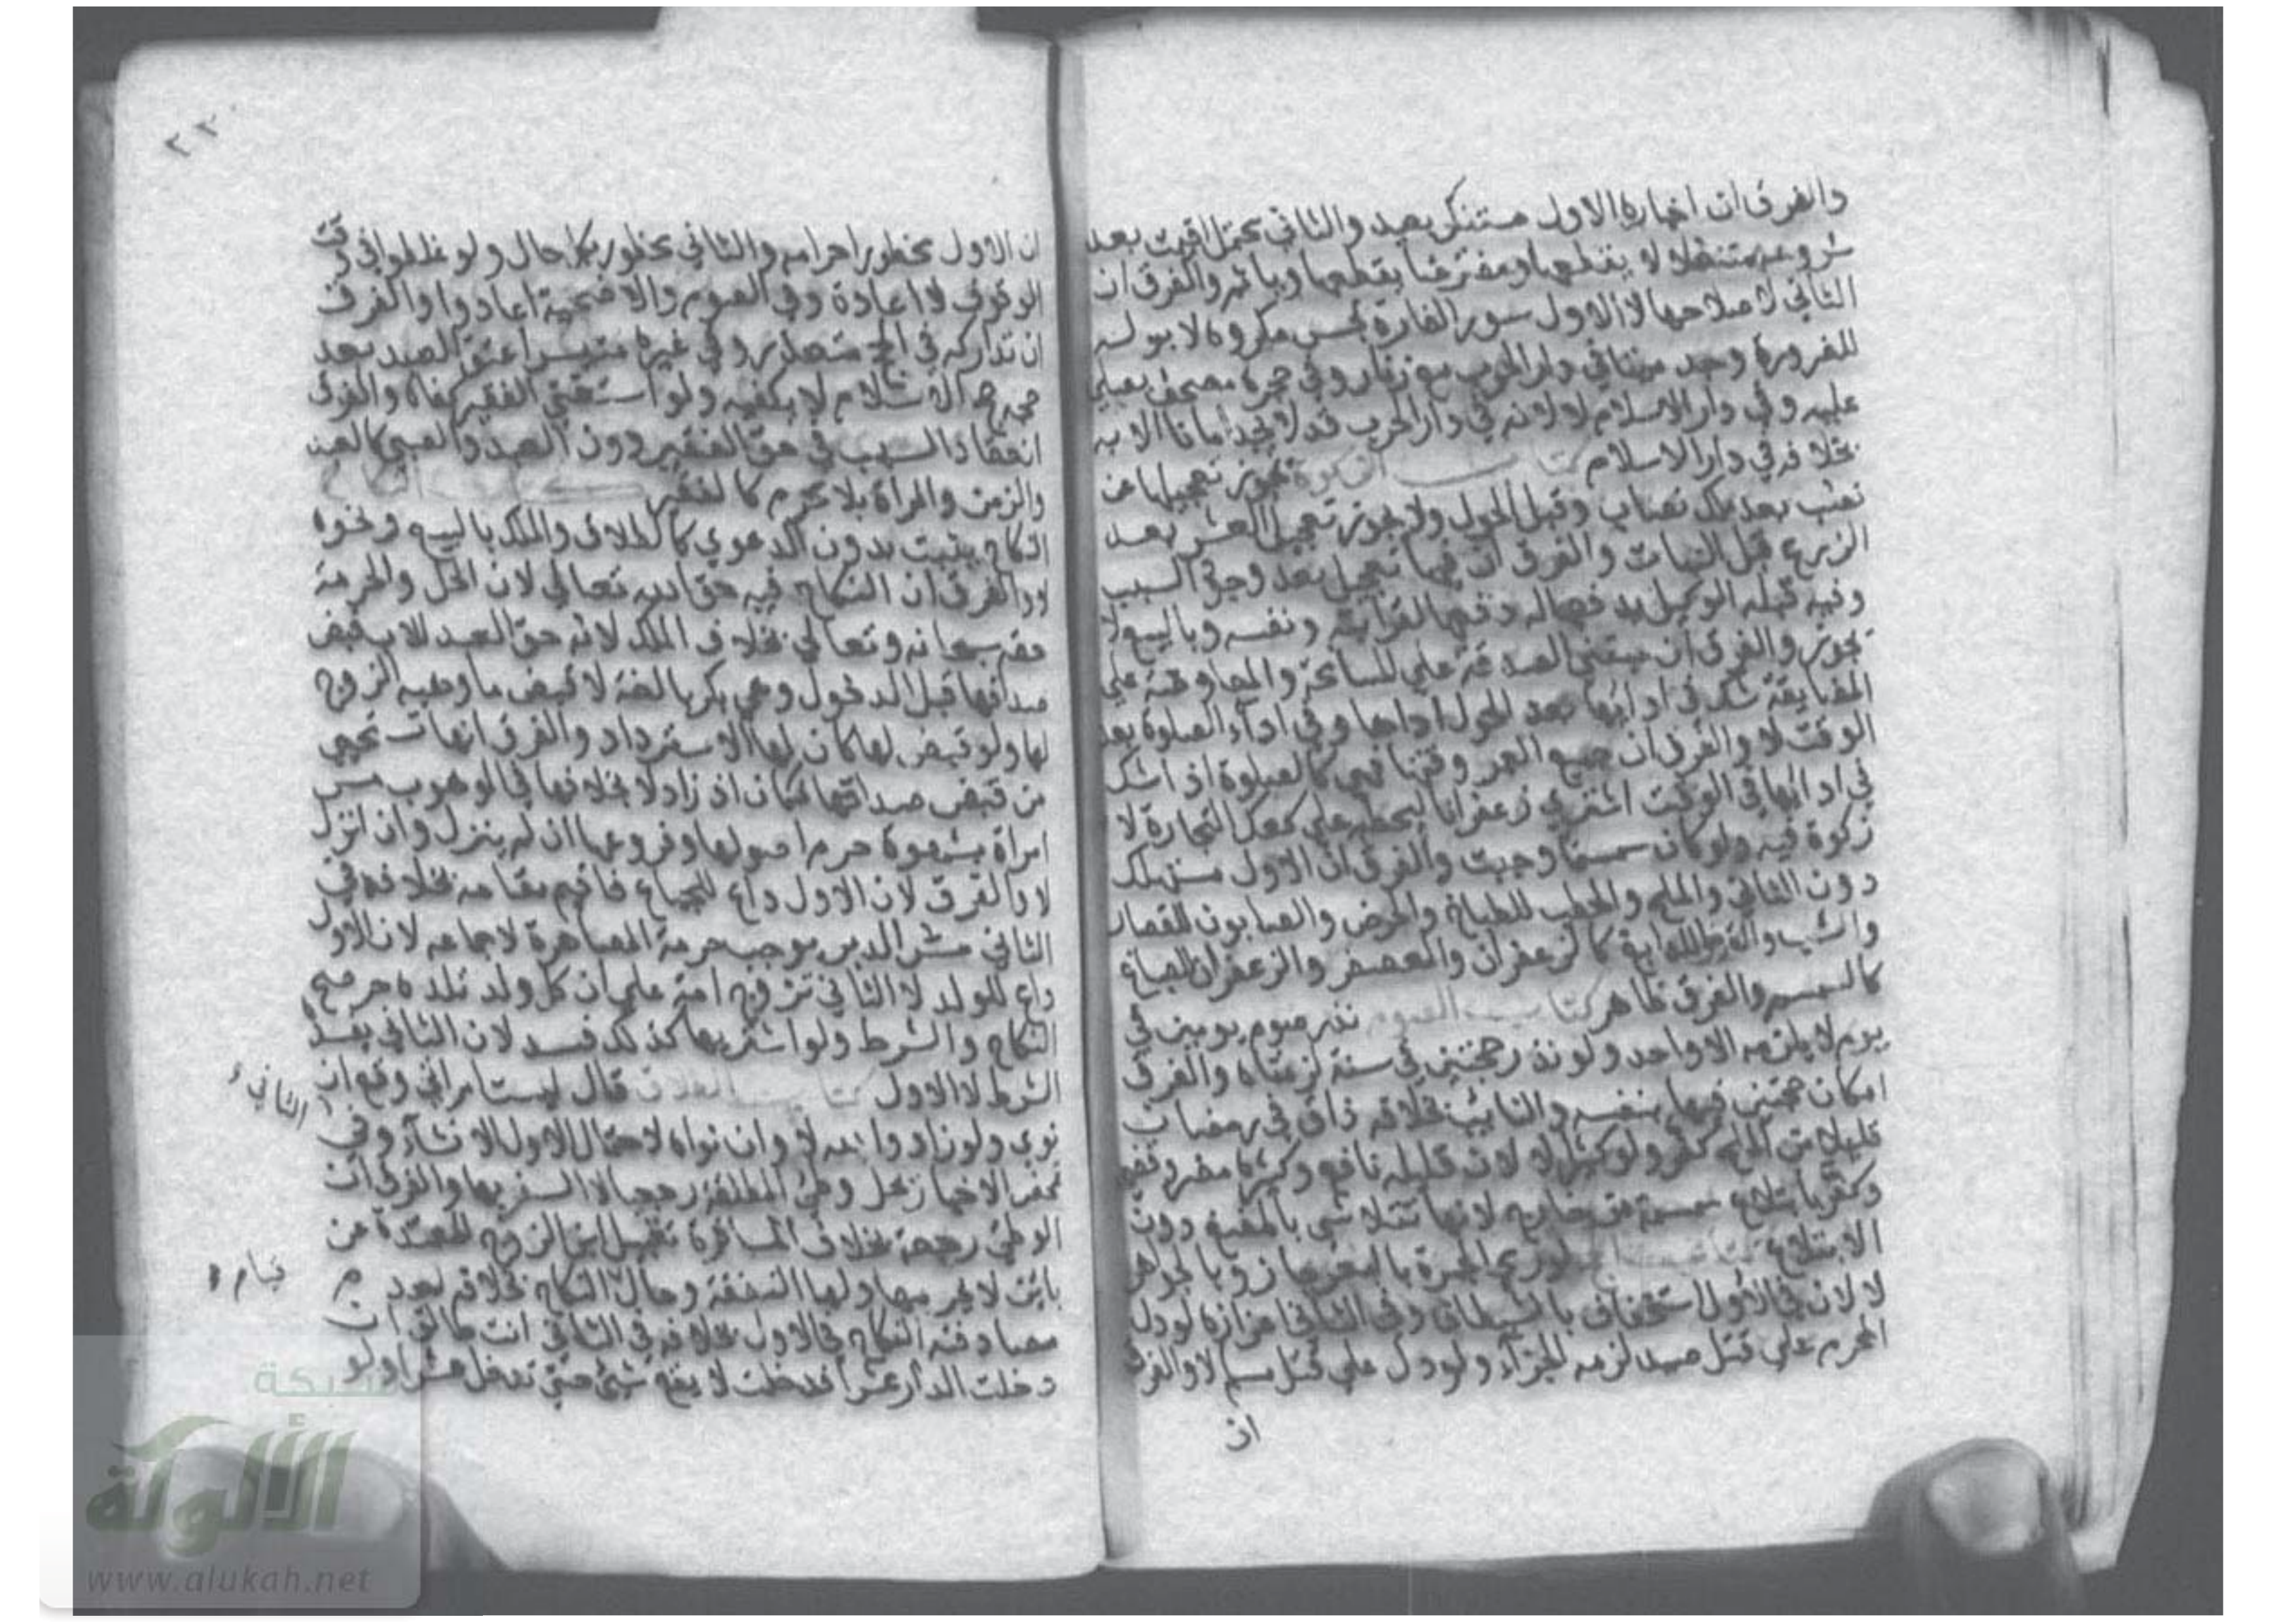 والفرق ان اخباره الاول مستنكر بعيد والثاني محتمل اقيمت بعد
شروعه متنفلا لا يقطعها ومفترضا يقطعها وياثم والفرق ان
الثاني لاصلاحها لا الاول سور الفارة نجس مكروه لا بوله
للضرورة وجد ميتا في دار الحرب مع زنار وفي حجره مصحف يصلي
عليه وفي دار الاسلام لا لانه في دار الحرب قد لا يجد امانا الا به
بخلافه في دار الاسلام كتاب الزكوة يجوز تعجيلها عن
نصب بعد ملك نصاب وقبل الحول ولا يجوز تعجيل العشر بعد
الزرع قبل النبات والفرق ان فيها تعجيل بعد وجود السبب
وفيه قبله الوكيل بدفعها له دفعها لقرابته ونفسه وبالبيع لا
يجوز والفرق ان مبنى الصدقة على المسامحة والمعاوضة على
المضايقة شك في ادائها بعد الحول اداها وفي اداء الصلوة بعد
الوقت لا والفرق ان جميع العمر وقتها فهي كالصلوة اذا شك
في ادائها في الوقت اشترى زعفرانا ليجعله على كعك التجارة لا
زكوة فيه ولو كان سمسما وجبت والفرق ان الاول مستهلك
دون الثاني والملح والحطب للطباخ والحرض والصابون للقصار
والشب والقرظ للدباغ كالزعفران والعصفر والزعفران للصباغ
كالسمسم والفرق ظاهر كتاب الصوم نذر صوم يومين في
يوم لا يلزمه الا واحد ولو نذر حجتين في سنة لزمتاه والفرق
امكان حجتين فيها بنفسه والنائب بخلافه ذاق في رمضان
قليلا من الملح كفر ولو كثيرا لا لان قليله نافع وكثيره مضر وقضى
وكفر بابتلاع سمسمة من خارج لانها تتلاشى بالمضغ دون
الابتلاع كتاب الحج لو رمى الجمرة بالبعر جاز وبالجواهر
لا لان في الاول استخفاف بالشيطان وفي الثاني اعزازه لو دل
المحرم على قتل صيد لزمه الجزاء ولو دل على قتل مسلم لا والفرق
ان
٢٢٠
ان الاول محظور احرامه والثاني محظور بكل حال ولو غلطوا في وقت
الوقوف لا اعادة وفي الصوم والاضحية اعادوا والفرق
ان تداركه في الحج متعذر وفي غيره متيسر اعتق العبد بعد
حجه حج الاسلام لا يكفيه ولو استغنى الفقير كفاه والفرق
انعقاد السبب في حق الفقير دون العبد والصبي كالعبد
والزمن والمراة بلا محرم كالفقير كتاب النكاح
النكاح يثبت بدون الدعوى كالطلاق والملك بالبيع ونحوه
لا والفرق ان النكاح فيه حق الله تعالى لان الحل والحرمة
حقه سبحانه وتعالى بخلاف الملك لانه حق العبد للاب قبض
صداقها قبل الدخول وهي بكر بالغة لا قبض ما وهبه الزوج
لها ولو قبض لها كان لها الاسترداد والفرق انها تستحيي
من قبض صداقها فكان اذنا دلالة بخلافها في الموهوب مس
امراة بشهوة حرم اصولها وفروعها ان لم ينزل وان انزل
لا والفرق لان الاول داع للجماع فاقيم مقامه بخلافه في
الثاني مس الدبر يوجب حرمة المصاهرة لا جماعه لان الاول
داع للولد لا الثاني تزوج امة على ان كل ولد تلده حر صح
النكاح والشرط ولو اشتريها كذلك فسد لان الثاني يفسده
الشرط لا الاول كتاب الطلاق قال ليست امراتي وقع ان
نوى ولو زاد والله لا وان نواه لاحتمال الاول الانشاء وفي
الثاني
تمحض الاخبار حل وطئ المطلقة رجعيا لا السفر بها والفرق ان
الوطئ رجعة بخلاف المسافرة تقبيل ابن الزوج المعتدة من
بائن لا يحرمها ولها النفقة وحال النكاح بخلافه لعدم
قيام
مصادفته النكاح في الاول بخلافه في الثاني انت طالق ان
دخلت الدار عشرا فدخلت لا يقع شيئ حتى تدخل عشرا ولو
شبكة
الألوكة
www.alukah.net